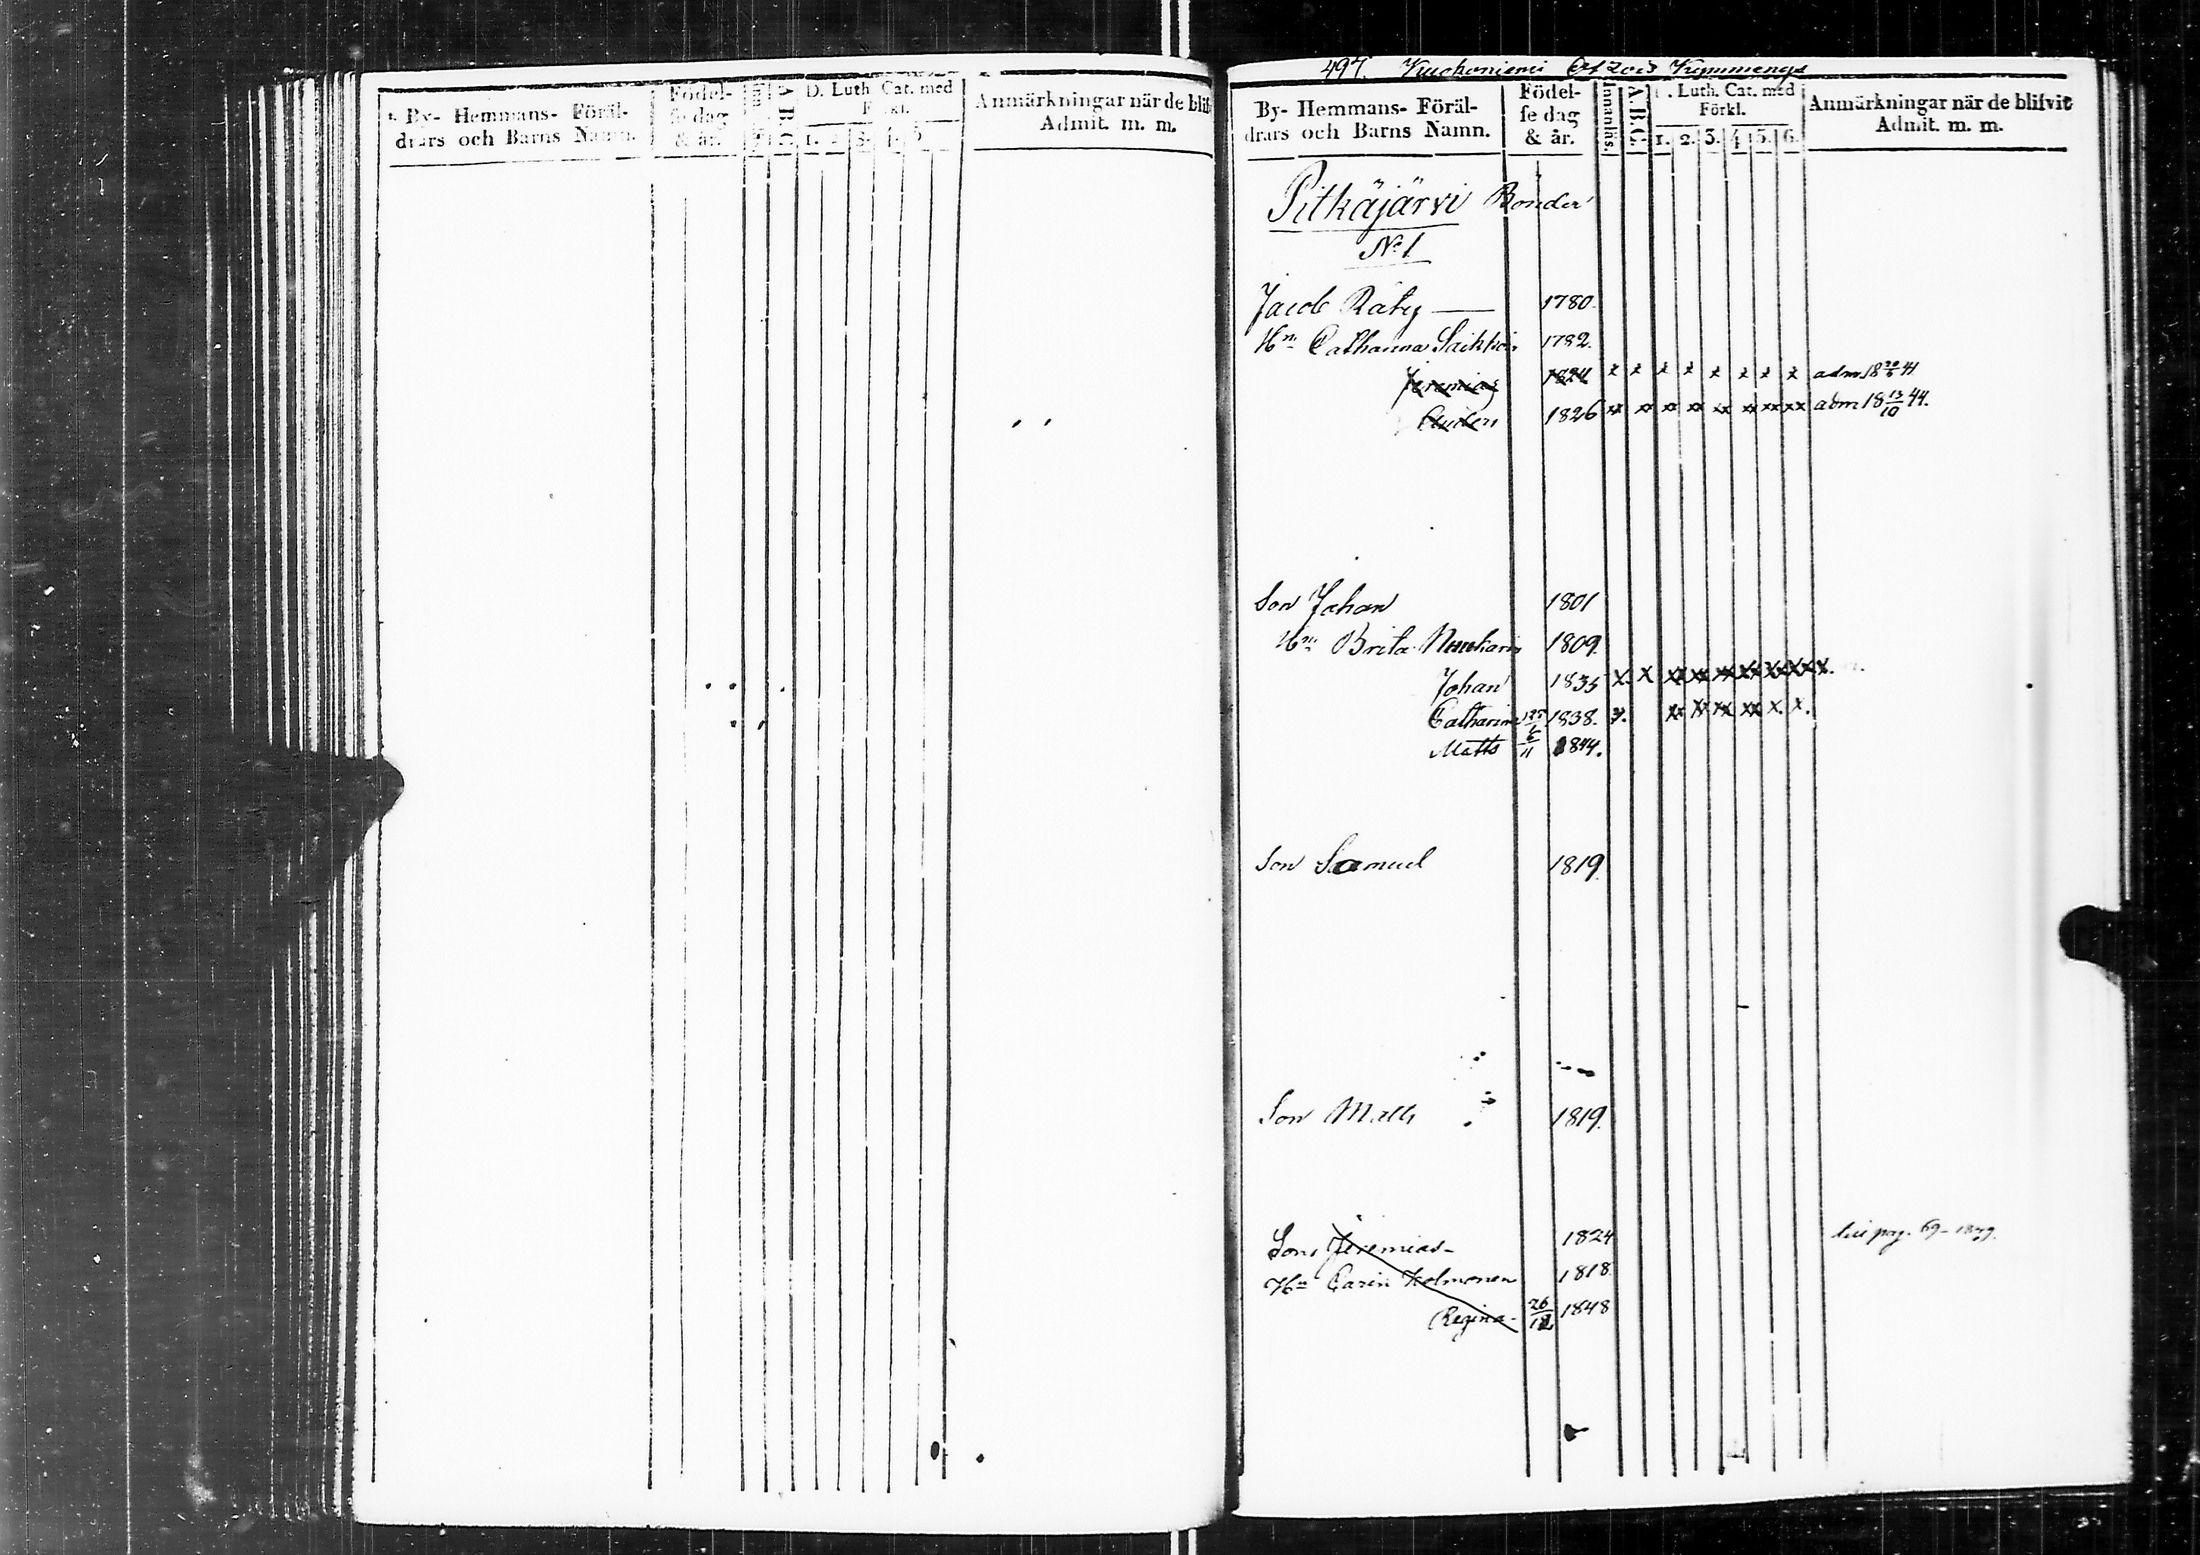 By- Hemmans- Föräl-
drars och Barns Namn.
Födel-
se dag
& år.
A.B.C.
D. Luth. Cat. med
Förkl.
1. 2. 3. 4. 5
Anmärkningar när de blifv
Admit. m. m.
497.
By- Hemmans- Föräl-
drars och Barns Namn.
Födel-
se dag
& år.
Innanläs.
A.B.C.
D. Luth. Cat. med
Förkl.
1. 2. 3. 4. 5. 6.
Anmärkningar när de blifvit
Admit. m. m.
Pitkäjärvi Bönder
No 1
Jacob Räty — 1780.
Hn Catharina 1782.
Jeremias 1824 x x x x x x x x adm 18 20/6 41
1826 xx xx xx xx xx xx xx xx adm 18 13/10 44.
Son Johan 1801
Hn Brita 1809.
Johan 1835 x. x xx xx xx xx xx xxx.
Catharina 1838. x. xx xx xx xx x. x.
Matts 6/11 1844.
Son Samuel 1819.
Son Matts 1819.
Son Jeremias 1824 pag. 69 - 1849.
Hn Carin Holmonen 1818.
Regina 26/12 1848